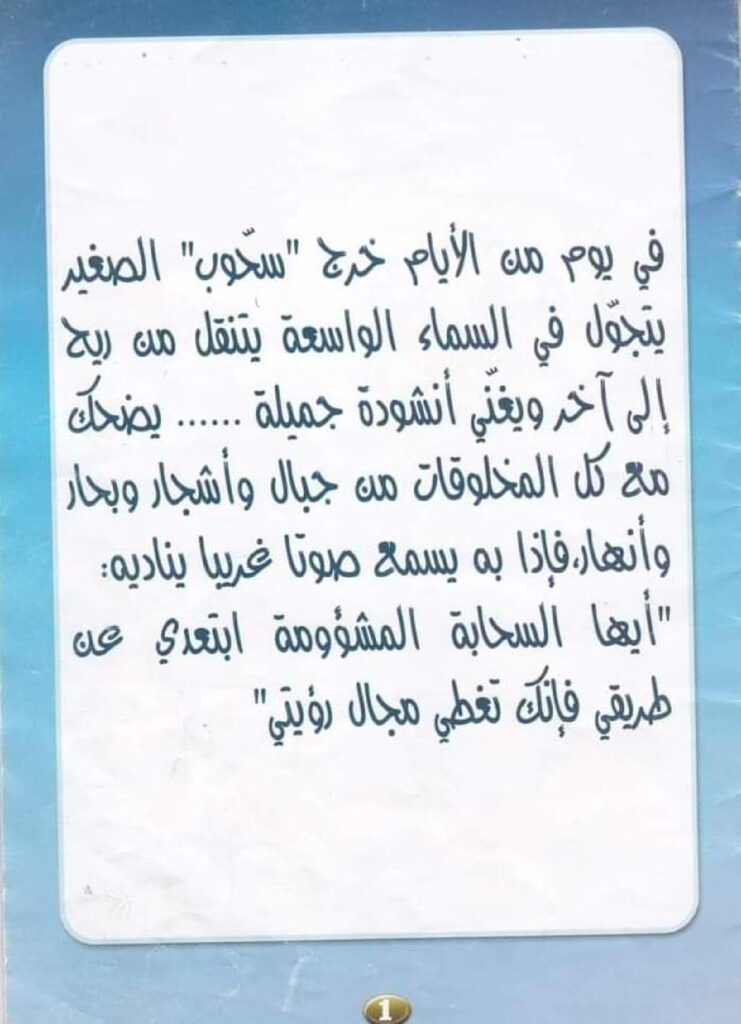 في يوم من الأيام خرج "سحّوب" الصغير
يتجوّل في السماء الواسعة يتنقل من ريح
إلى آخر ويغنّي أنشودة جميلة ...... يضحك
مع كل المخلوقات من جبال وأشجار وبحار
وأنهار،فإذا به يسمع صوتا غريبا يناديه:
"أيها السحابة المشؤومة ابتعدي عن
طريقي فإنك تغطي مجال رؤيتي"
1